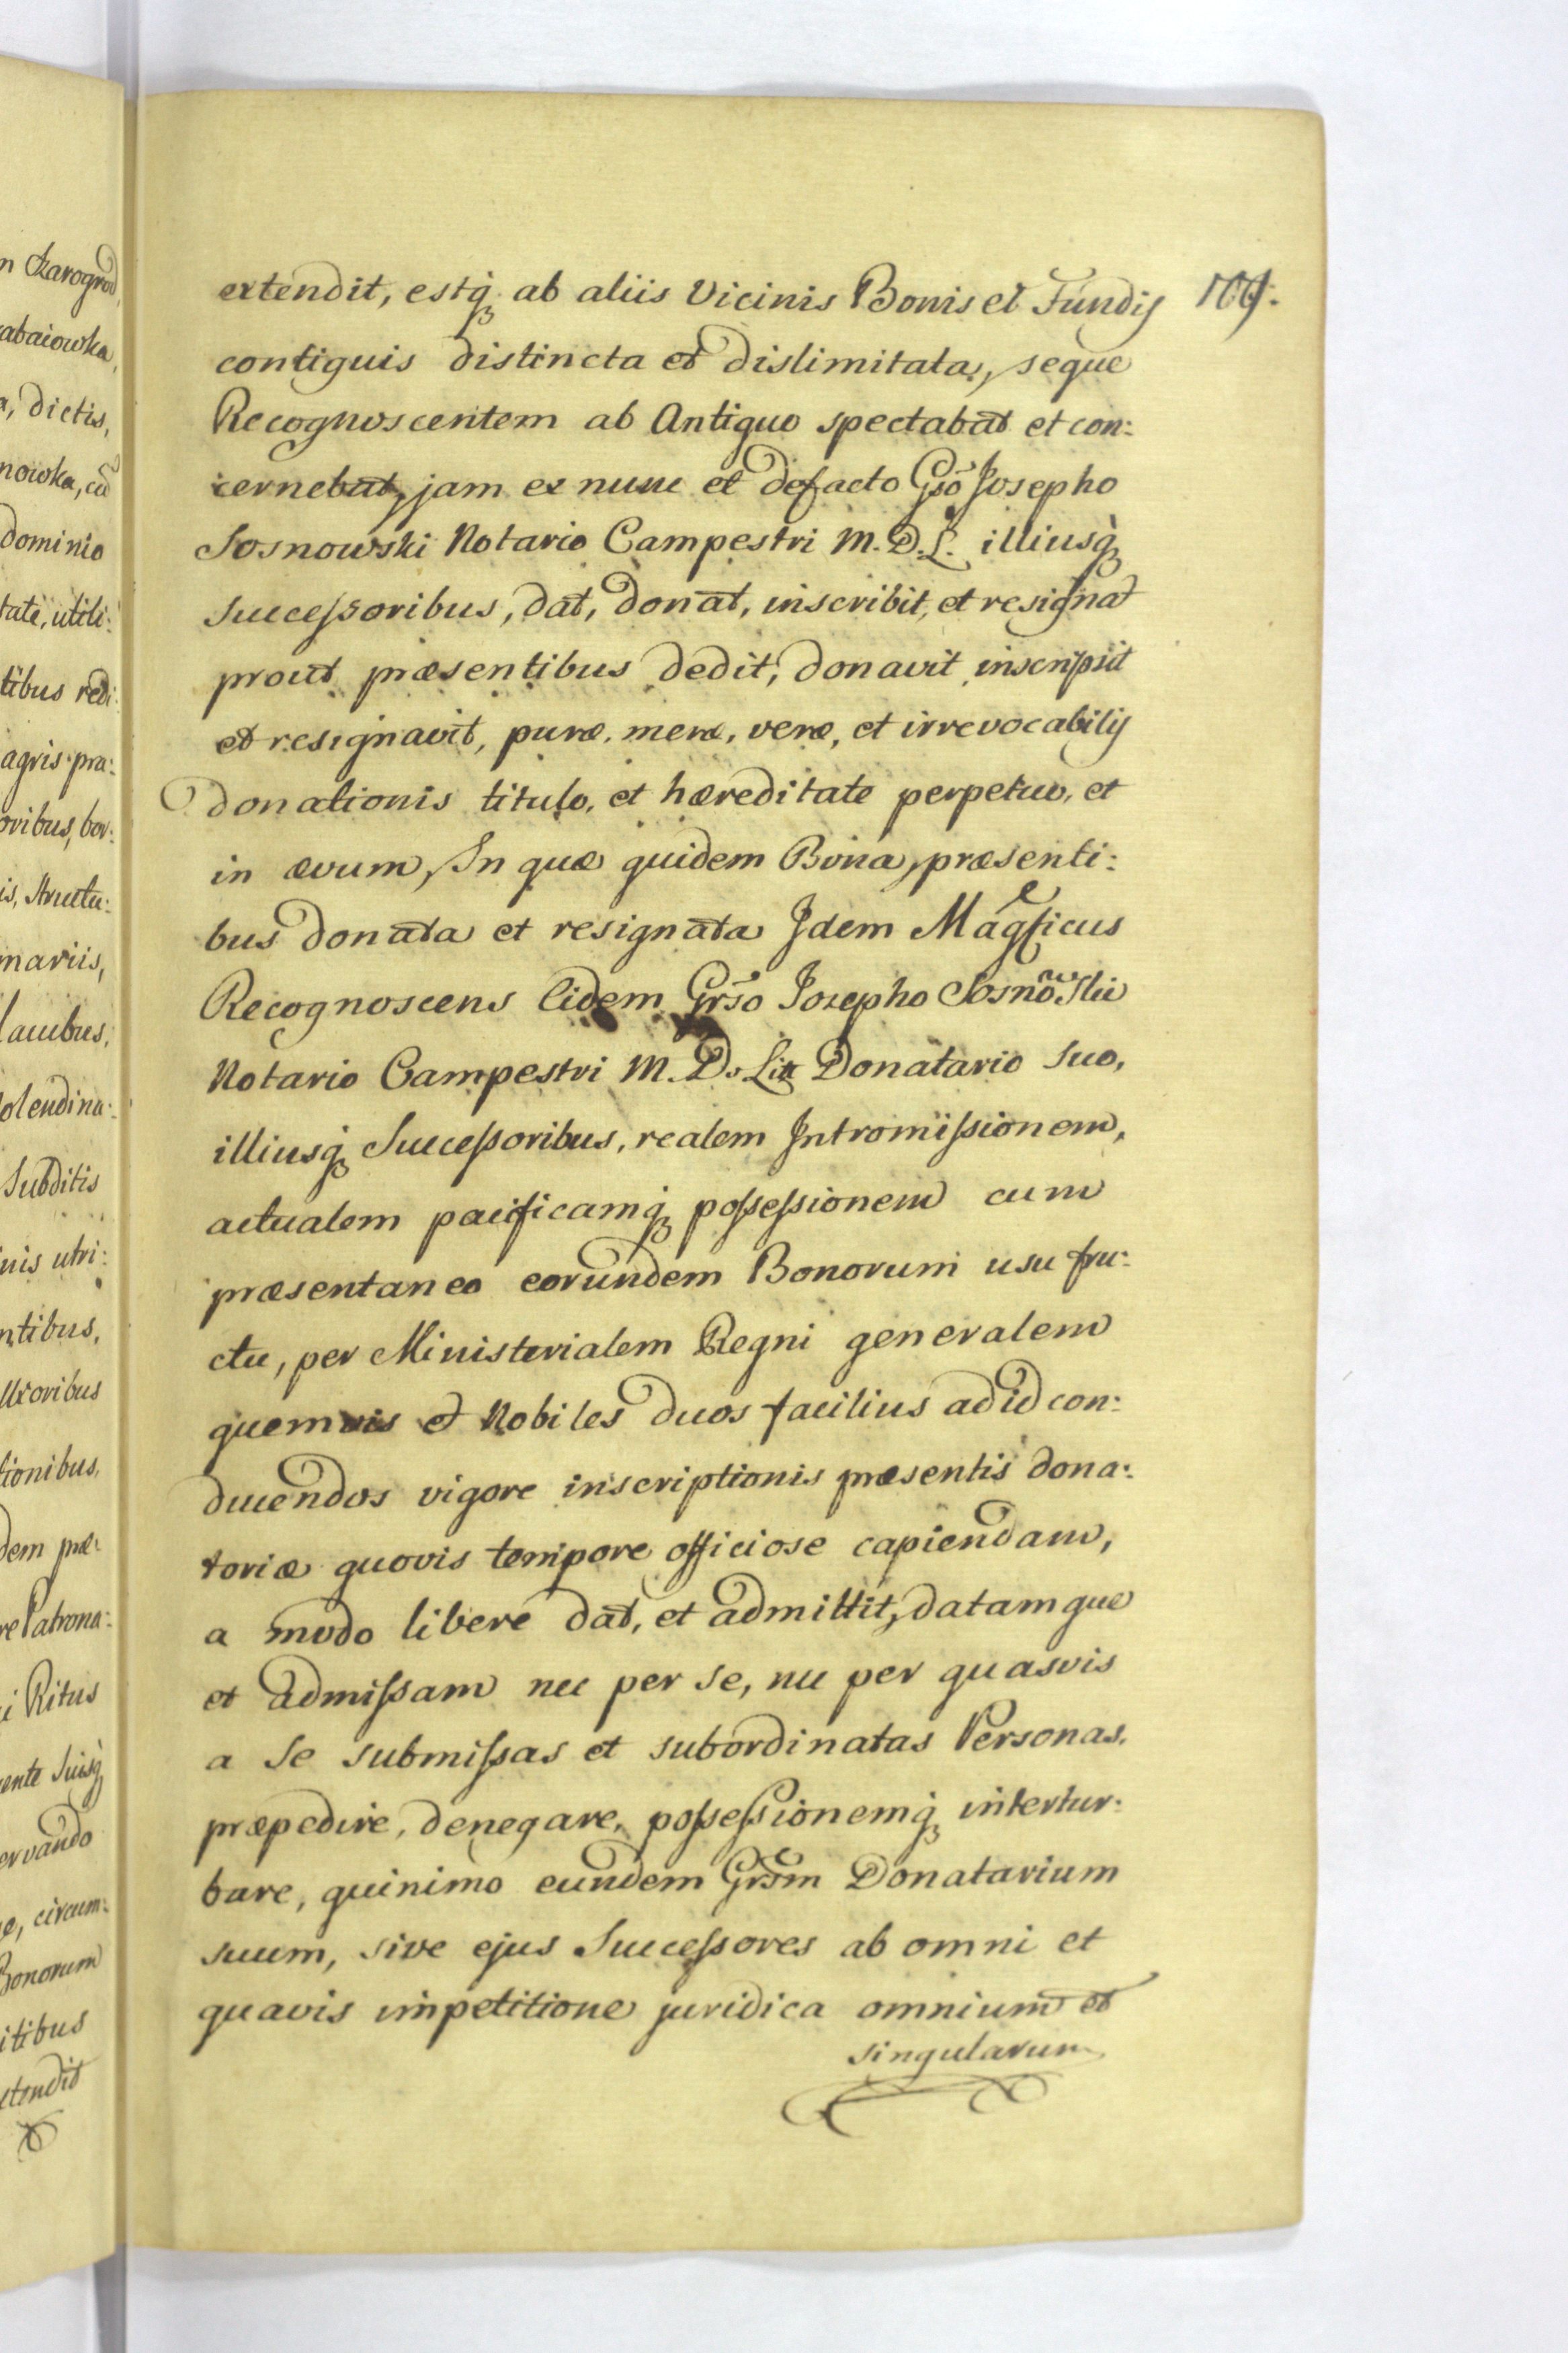 extendit, estq́ꝫ ab aliis Vicinis Bonis et Fundis 109.
contiguis distincta et dislimitata, seque
Recognoscentem ab Antiquo spectabat et con:
cernebat, jam ex nunc et defacto Gso Josepho
Sosnowski Notario Campestri M. D. L. illiusq́ꝫ
Successoribus, dat, donat, inscribit, et resignat
prout præsentibus dedit, donavit inscripsit
et resignavit, puræ, meræ, veræ, et irrevocabilis
donationis titulo, et hæreditate perpetuo, et
in ævum, In quæ quidem Bona, præsenti:
bus donata et resignata Idem Magficus
Recognoscens Eidem Grso Josepho Sosnowski
Notario Campestri M. D. Litt Donatario Suo,
illiusq́ꝫ Successoribus, realem Intromissionem,
actualem pacificamq́ꝫ possessionem cum
præsentaneo eorundem Bonorum usu fru:
ctu, per Ministerialem Regni generalem
quemvis et Nobiles duos facilius ad id con:
ducendos vigore inscriptionis præsentis dona:
toriæ quovis tempore officiose capiendam,
a modo libere dat, et admittit, datamque
et admissam nec per se, nec per quasvis
a Se submissas et subordinatas Personas,
præpedire, denegare, possessionemq́ꝫ intertur:
bare, quinimo eundem Grsm Donatarium
suum, sive ejus Successores ab omni et
quavis impetitione juridica omnium et
singularum
n Czarogrod,
abaiowka,
a, dictis,
nowka, cũ
dominio
tate, utili:
tibus redi:
agris pra:
oribus, bor:
is, structu:
mariis,
lacubus,
olendina:
Subditis
nis utri:
ntibus,
tionibus,
dem præ:
re Patrona:
i Ritus
ente Suisq́ꝫ
ervando
e, circum:
Bonorum
itibus
xtendit